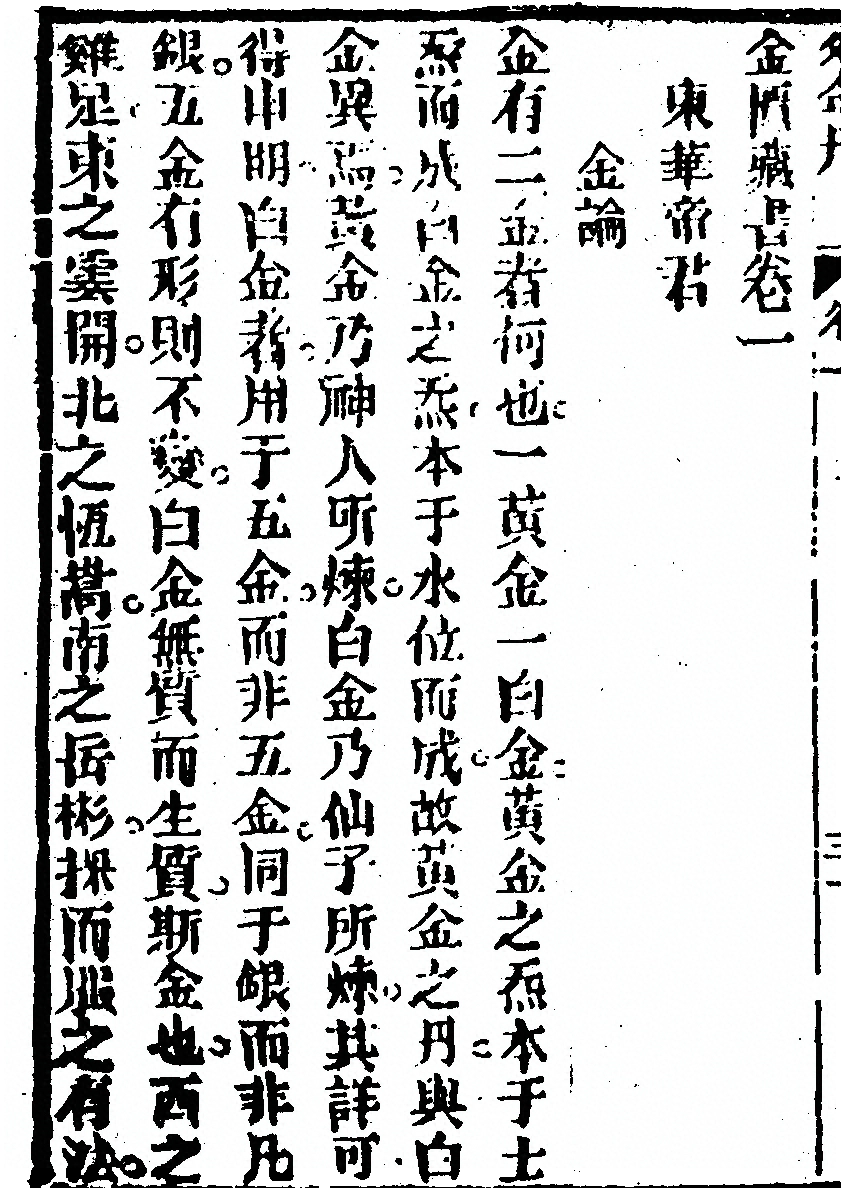 金匱藏書卷一
東華帝君
金論
金有二金者何也一黃金一白金黃金之炁本于土
炁而成白金之炁本于水位而成故黃金之丹與白
金異焉黃金乃神人所煉白金乃仙子所煉其詳可
得申明白金者用于五金而非五金同于銀而非凡
銀五金有形則不變白金無質而生質斯金也西之
雞足東之雲開北之恆嵩南之岳彬採而服之有法